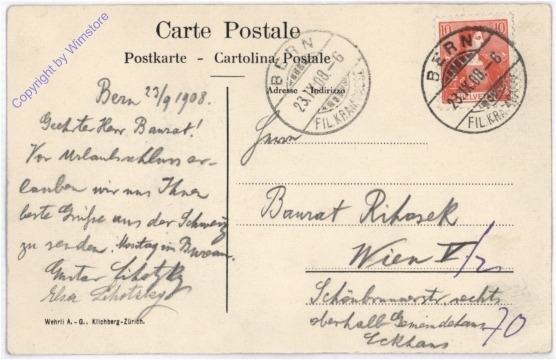 Carte Postale
Postkarte - Cartolina Postale
Adresse Indirizzo
BERN
23.IX.08.-6
FIL.KRAMGASSE
10 10
HELVETIA
BERN
23.IX.08.-6
FIL.KRAMGASSE
Bern 23/9 1908.
Geehrter Herr Baurat!
Vor Urlaubschluss er-
lauben wir uns Ihnen
beste Grüße aus der Schweiz
zu senden. Montag in Bureau.
Gustav Lihotzky
Elsa Lihotzky
Herrn
Baurat Rihosek
Wien V/2
Schönbrunnerstr. rechts
oberhalb Gemeindehaus 70
Eckhaus
Wehrli A.-G., Kilchberg-Zürich.
Copyright by Wimstore